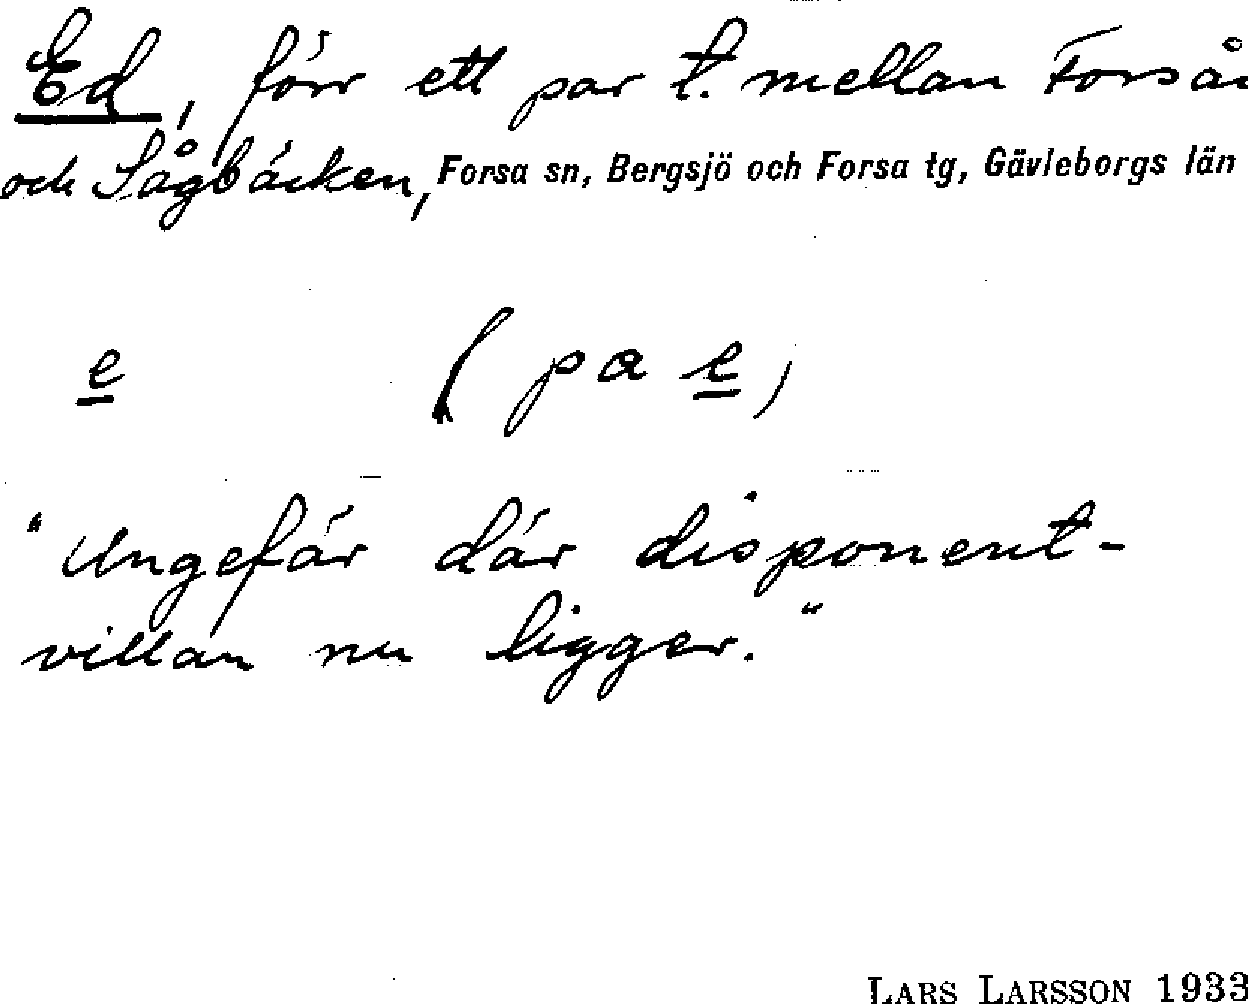 Ed, förr ett par t. mellan Forsån
och Sågbäcken, Forsa sn, Bergsjö och Forsa tg, Gävleborgs län
e (pa e)
"Ungefär där disponent-
villan nu ligger."
LARS LARSSON 1933